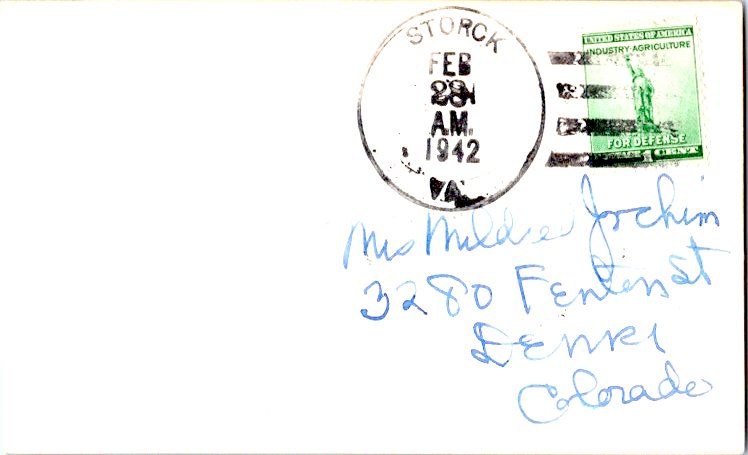 STORCK
FEB
28
A.M.
1942
VA.
UNITED STATES OF AMERICA
INDUSTRY-AGRICULTURE
FOR DEFENSE
1 CENT
Mildred Jochim
3280 Fenton St
Denver
Colorado